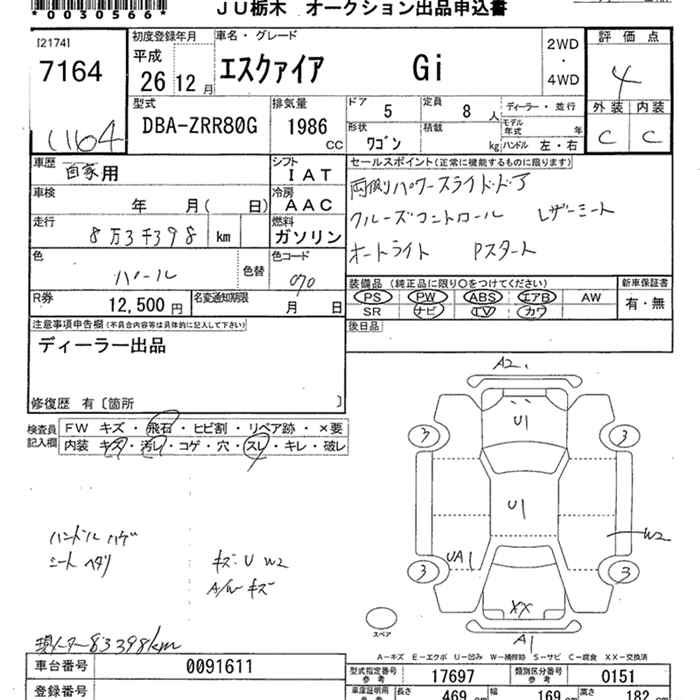 *0030566*
JU栃木 オークション出品申込書
[2174]
7164
初度登録年月
平成
26 12月
車名・グレード
エスクァイア Gi
2WD
・
4WD
評価点
4
外装 内装
C C
型式
DBA-ZRR80G
排気量
1986 CC
ドア
5
定員
8 人
ディーラー・並行
モデル年式 年
形状
ワゴン
積載
kg
ハンドル 左・右
車歴
自家用
シフト
IAT
車検
年 月( 日)
冷房
AAC
走行
8万3千398 km
燃料
ガソリン
色
パール
色替
色コード
070
R券
12,500円
名変通知期限
月 日
セールスポイント(正常に機能するものに限ります)
両側パワースライドドア
クルーズコントロール レザーシート
オートライト Pスタート
装備品(純正品に限り○をつけてください)
PS PW ABS エアB AW
SR ナビ TV カワ
新車保証書
有・無
後日品
注意事項申告欄(不具合内容等は具体的に記入して下さい)
ディーラー出品
修復歴 有〔箇所 〕
検査員
記入欄
FW キズ・飛石・ヒビ割・リペア跡・×要
内装 キズ・汚レ・コゲ・穴・スレ・キレ・破レ
ハンドル ハゲ
シート ヘタリ
キズ・U W2
A/W キズ
現メーター83398km
A2
U1
3
3
U1
W2
UA1
3
3
XX
A1
スペア
A-キズ E-エクボ U-凹み W-補修跡 S-サビ C-腐食 XX-交換済
車台番号
0091611
登録番号
型式指定番号
参考
17697
類別区分番号
参考
0151
車庫証明用
参考
長さ
469 cm
幅
169 cm
高さ
182 cm